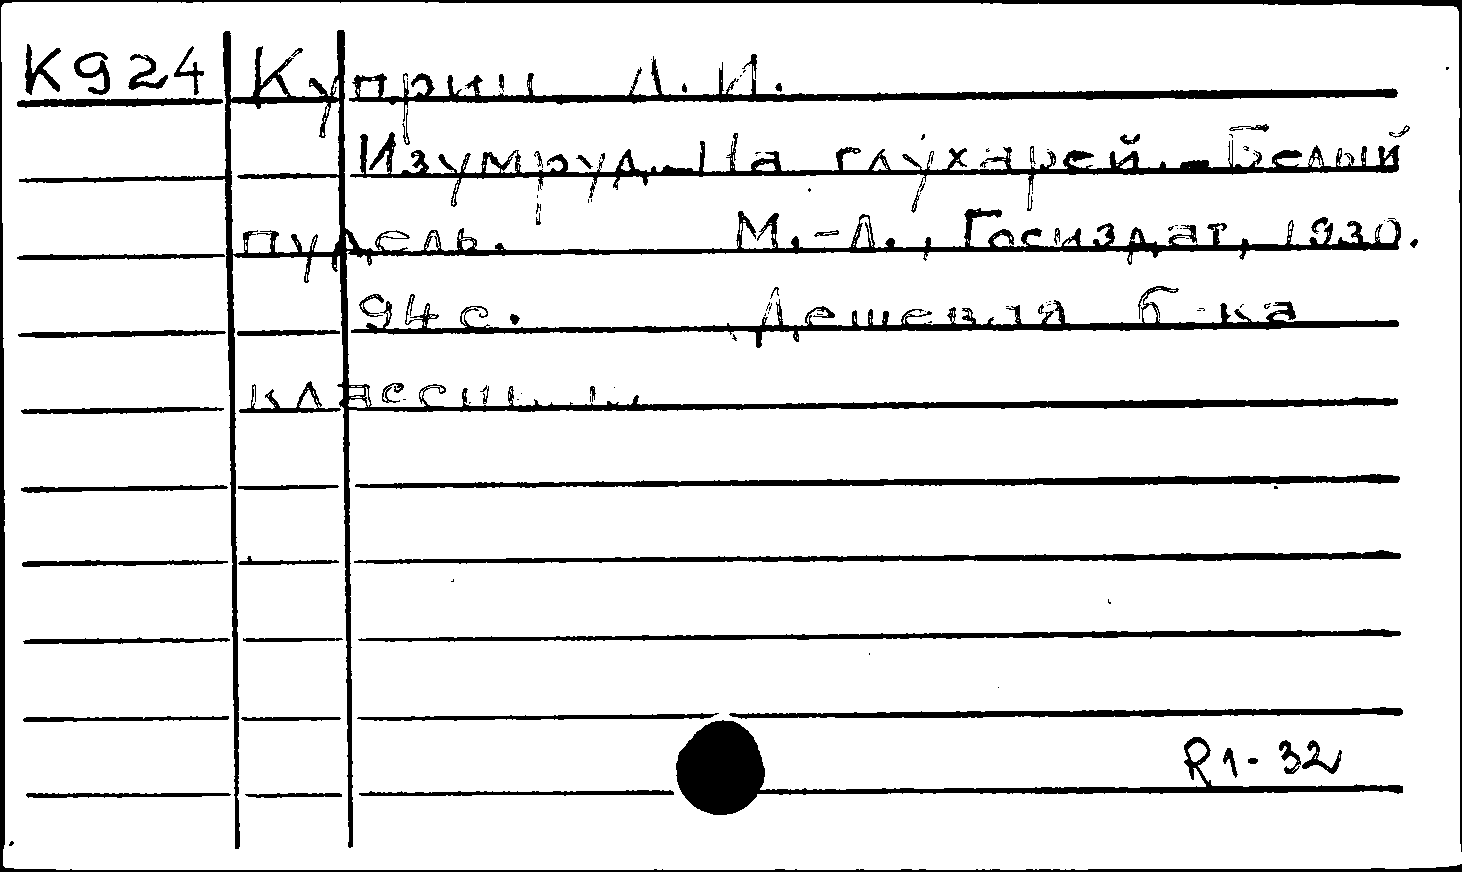 К924 Куприн А.И.
Изумруд.-На глухарей.-Белый
пудель. М.-Л., Госиздат, 1930.
94с. Дешевая б-ка
классиков
R1-32